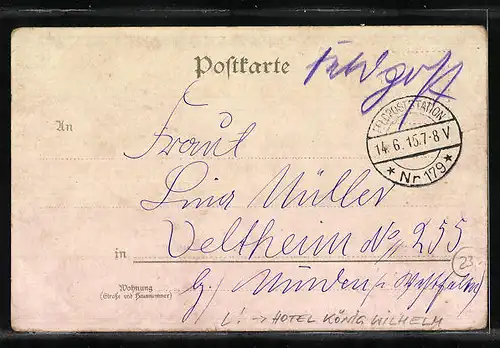 Postkarte
Feldpost
FELDPOSTSTATION
14.6.15.7-8V
* Nr.179 *
An
Fräul
Lina Müller
in
Veltheim No 255
23
Wohnung
(Straße und Hausnummer)
b/ Minden i/ Westfalen
L! → HOTEL KÖNIG WILHELM